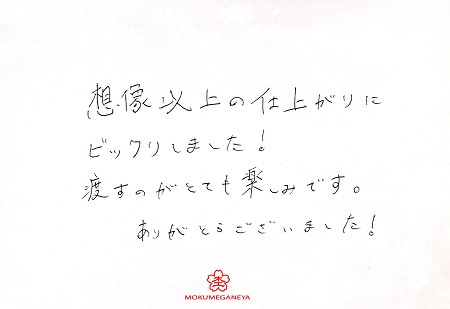 想像以上の仕上がりに
ビックリしました!
渡すのがとても楽しみです。
ありがとうございました!
MOKUMEGANEYA